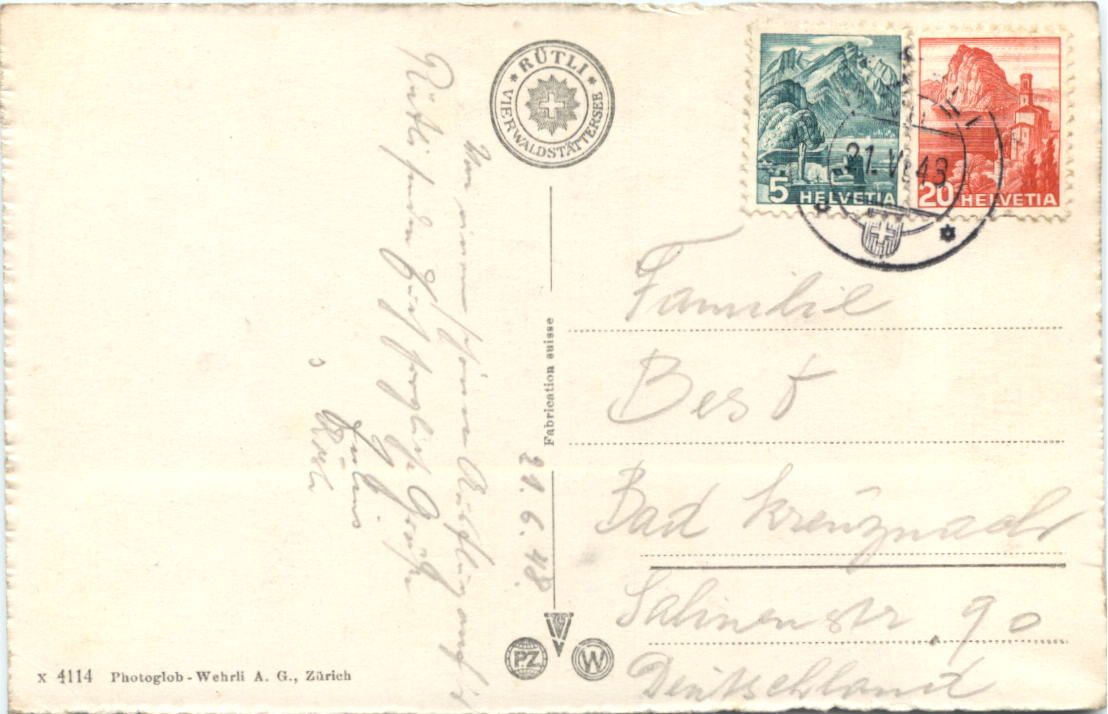 21.6.48.
Von einem schönen Ausflug auf's
Rütli senden Euch herzliche Grüße
Julius
Rosli
★ RÜTLI ★
VIERWALDSTÄTTERSEE
Fabrication suisse
PZ
W
X 4114 Photoglob-Wehrli A. G., Zürich
5 HELVETIA
20 HELVETIA
21.VI.48
Familie
Best
Bad Kreuznach
Salinenstr. 90
Deutschland